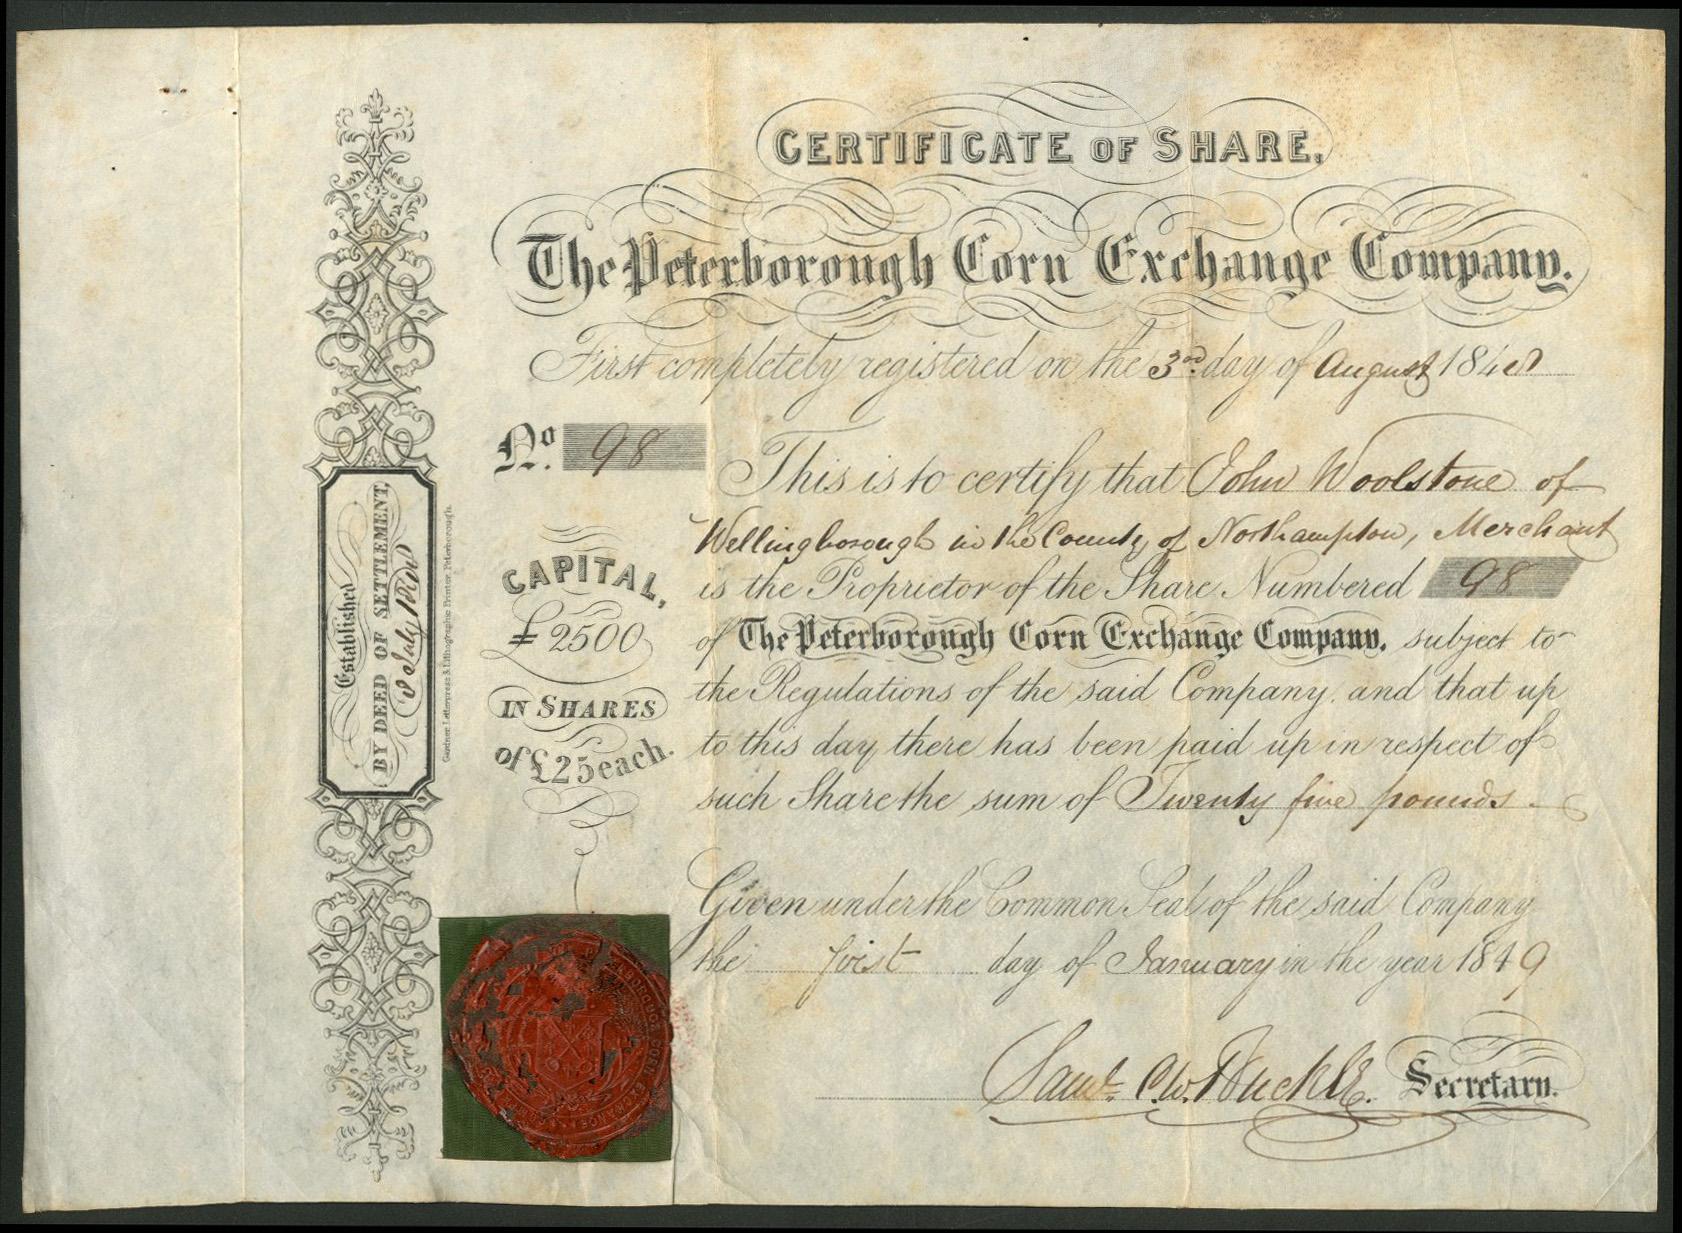 CERTIFICATE OF SHARE,
The Peterborough Corn Exchange Company.
First completely registered on the 3rd. day of August 1848
No. 98
This is to certify that John Woolstone of
Wellingborough in the County of Northampton, Merchant
is the Proprietor of the Share Numbered 98
of The Peterborough Corn Exchange Company, subject to
the Regulations of the said Company, and that up
to this day there has been paid up in respect of
such Share the sum of Twenty five pounds
CAPITAL,
£2500
IN SHARES
of £25 each.
Given under the Common Seal of the said Company
the first day of January in the year 1849
Saml. C. W. Buckle. Secretary.
Established
BY DEED OF SETTLEMENT,
July
Gardner, Letterpress & Lithographic Printer, Peterborough.
CORN EXCHANGE